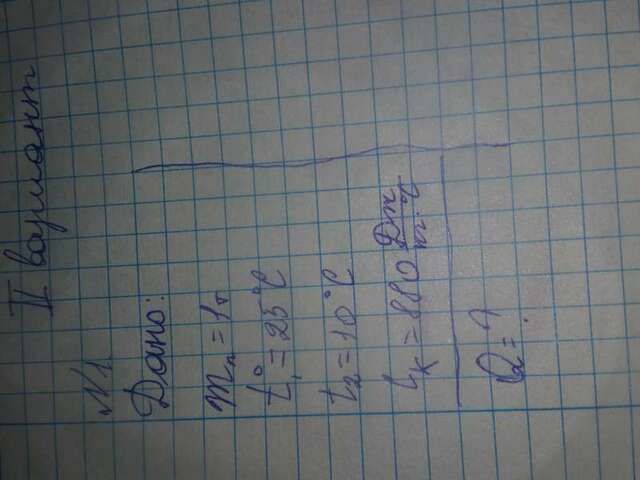 II вариант
№1.
Дано:
mп = 1т
t°₁ = 25°C
t₂ = 10°C
Cк = 880 Дж/кг·°C
Q = ?